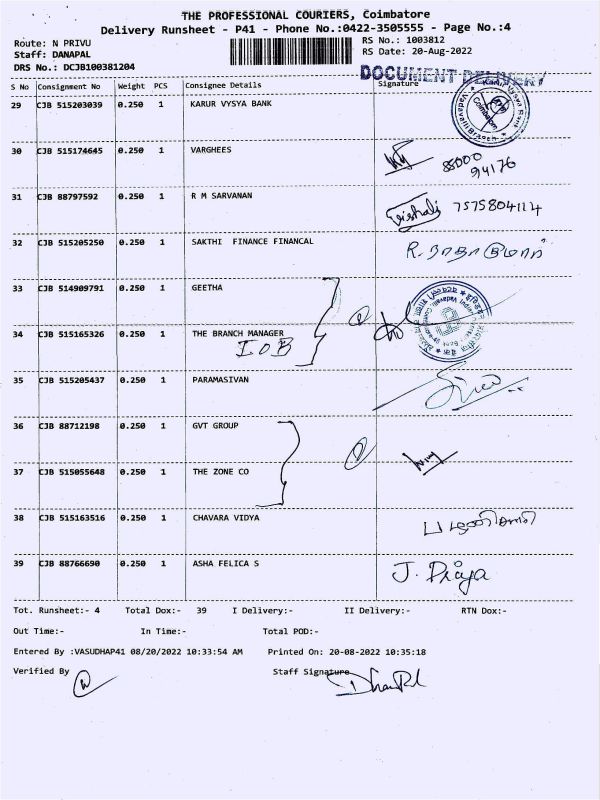 THE PROFESSIONAL COURIERS, Coimbatore
Delivery Runsheet - P41 - Phone No.:0422-3505555 - Page No.:4
Route: N PRIVU RS No.: 1003812
Staff: DANAPAL RS Date: 20-Aug-2022
DRS No.: DCJB100381204
DOCUMENT DELIVERY
S No Consignment No Weight PCS Consignee Details Signature
29 CJB 515203039 0.250 1 KARUR VYSYA BANK
Vadavalli Branch
Coimbatore
30 CJB 515174645 0.250 1 VARGHEES 85000
94176
31 CJB 88797592 0.250 1 R M SARVANAN Vishali 7575804124
32 CJB 515205250 0.250 1 SAKTHI FINANCE FINANCAL R.
33 CJB 514909791 0.250 1 GEETHA
34 CJB 515165326 0.250 1 THE BRANCH MANAGER
IOB
35 CJB 515205437 0.250 1 PARAMASIVAN
36 CJB 88712198 0.250 1 GVT GROUP
37 CJB 515055648 0.250 1 THE ZONE CO
38 CJB 515163516 0.250 1 CHAVARA VIDYA
39 CJB 88766690 0.250 1 ASHA FELICA S J. Priya
Tot. Runsheet:- 4 Total Dox:- 39 I Delivery:- II Delivery:- RTN Dox:-
Out Time:- In Time:- Total POD:-
Entered By :VASUDHAP41 08/20/2022 10:33:54 AM Printed On: 20-08-2022 10:35:18
Verified By Staff Signature